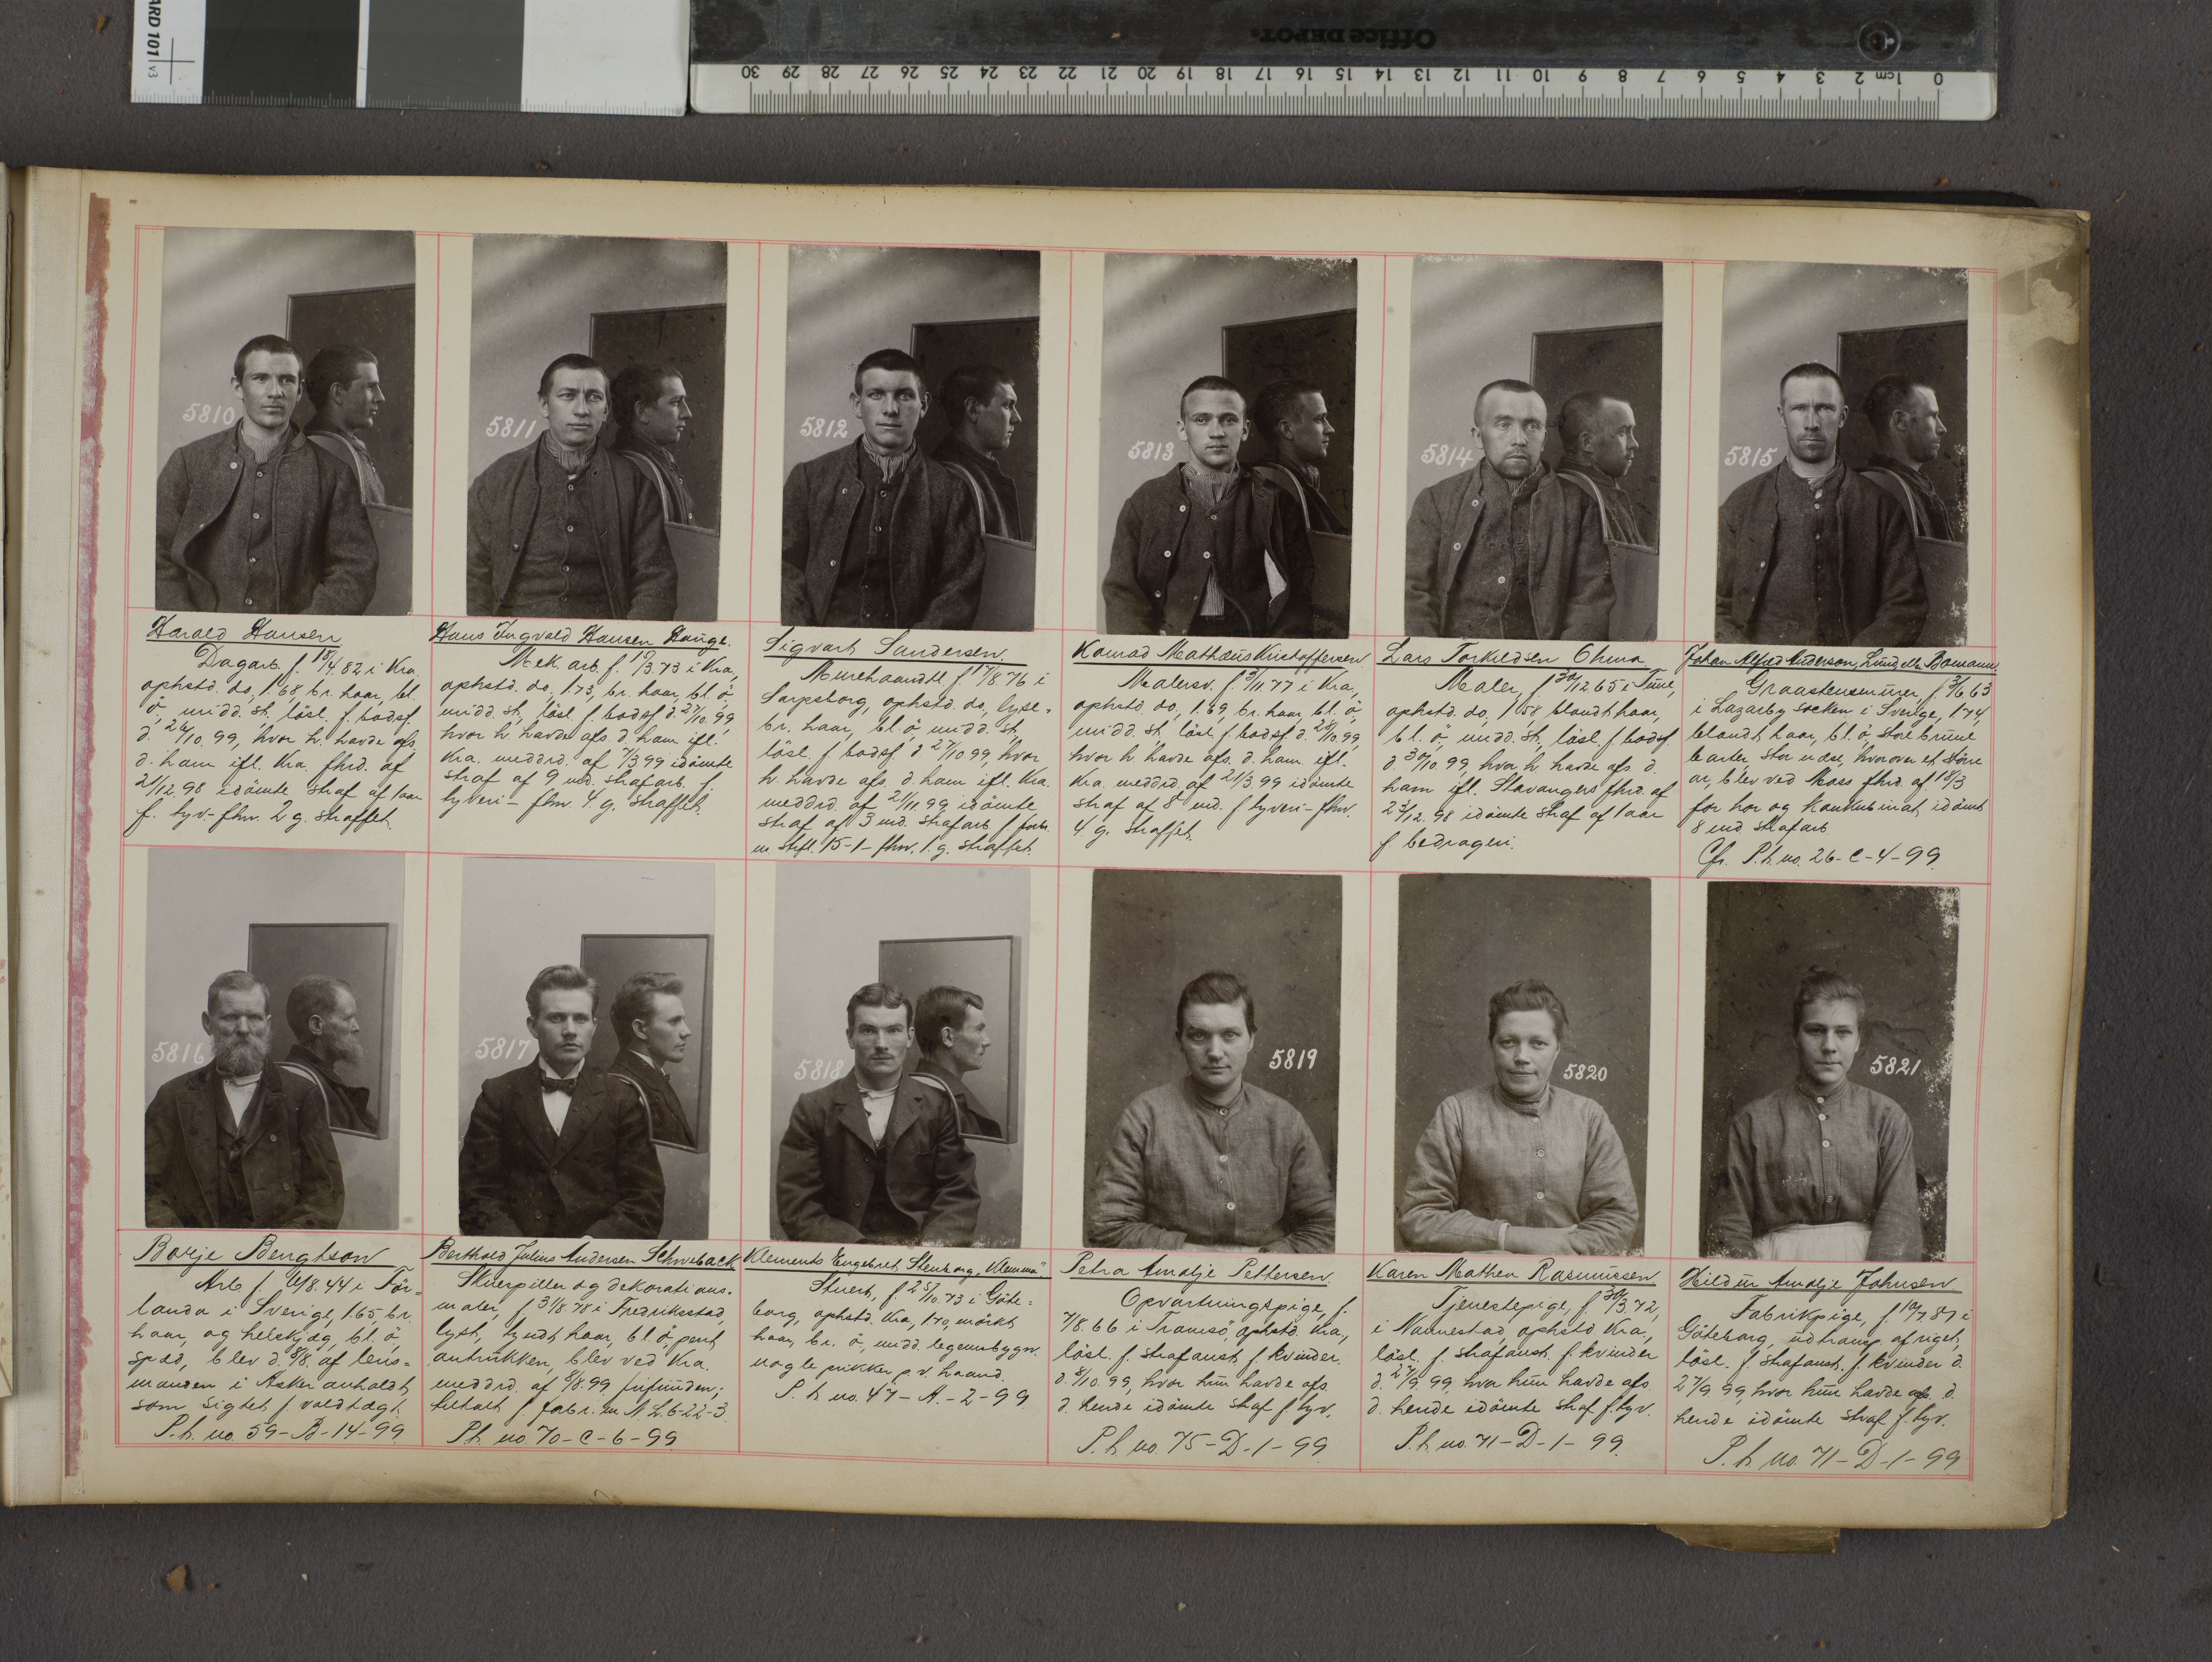 ARD 101 v3
Office DEPOT
30 29 28 27 26 25 24 23 22 21 20 19 18 17 16 15 14 13 12 11 10 9 8 7 6 5 4 3 2 1cm 0
5810
Harald Hansen
Dagarb. f. 18/4.82 i Kra,
ophstd. do, 1.68, br. haar, bl.
ö, midd. st. lösl. f. bodsf.
d. 24/10.99, hvor h. havde afs.
d. ham ifl. Kra. fhrd. af
21/12.98 idömte straf af 1 aar
f. tyv- fhv. 2 g. straffet.
5811
Hans Ingvald Hansen Hauge.
Mek. arb. f. 15/3.73 i Kra,
ophstd. do, 1.73, br. haar, bl. ö,
midd. st, lösl. f. bodsf. d. 27/10.99,
hvor h. havde afs. d. ham ifl.
Kra. meddrd. af 7/3 99 idömte
straf af 9 md. strafarb. f.
tyveri - fhv. 4 g. straffet.
5812
Sigvart Sandersen.
Murehaandtl. f. 17/8.76 i
Sarpsborg, ophstd. do, lyse-
br. haar, bl. ö, midd. st,
lösl. f. bodsf. d. 27/10 99, hvor
h. havde afs. d. ham ifl. Kra.
meddrd. af 21/11 99 idömte
straf af 3 md. strafarb. f. forbr.
m. strfl. 15-1- fhv. 1. g. straffet.
5813
Konrad Mathæus Kristoffersen.
Malersv. f. 3/11.77 i Kra,
ophstd. do, 1.69, br. haar, bl. ö,
midd. st, lösl. f. bodsf. d. 28/10.99,
hvor h. havde afs. d. ham ifl.
Kra. meddrd. af 21/3.99 idömte
straf af 8 md. f. tyveri - fhv.
4 g. straffet.
5814
Lars Torkildsen Ohma
Maler, f. 30/12 65 i Time,
ophstd. do, 1.58, blondt haar,
bl. ö, midd. st., lösl. f. bodsf.
d. 30/10. 99, hvor h. havde afs. d.
ham ifl. Stavangers fhrd. af
23/12. 98 idömte straf af 1 aar
f. bedrageri.
5815
Johan Alfred Anderson, Lund, ell. Bomann,
Graastensmurer, f. 3/6 63
i Lazarby socken i Sverige, 1.74,
blondt haar, bl. ö, store brune
barter, stor næse, hvorover et större
ar, blev ved Moss fhrd. af 18/3
for hor og konkubinat idömt
8 md strafarb
Cfr. P.h. no. 26-C-4-99.
5816
Borje Bengtson
Arb. f. 16/8.44 i För-
landa i Sverige, 1.65, br.
haar, og helskjæg, bl. ö,
spæd, blev d. 8/8. af lens-
manden i Asker anholdt,
som sigtet f. voldtægt.
P.h. no. 59-B-14-99.
5817
Berthold Julius Andersen Schwaback
Skuespiller og dekorations-
maler, f. 31/8.78 i Fredriksstad,
lyst, tyndt haar, bl. ö, pent
antrukken, blev ved Kra.
meddrd. af 8/8.99 frifunden;
tiltalt f. forbr. m. N.L. 6-22-3.
P.h. no. 70-C-6-99
5818
Klements Engebret Stenborg, "Klemma".
Stuert, f. 25/10.73 i Göte-
borg, ophstd. Kra, 1.70, mörkt
haar, br. ö, midd. legemsbygn.
nogle prikker p. v. haand.
P.h. no. 47-A-2-99
5819
Petra Amalje Pettersen.
Opvartningspige, f.
7/8.66 i Tromsö, ophstd. Kra,
lösl. f. strafanst. f. kvinder
d. 8/10.99, hvor hun havde afs.
d. hende idömte straf f. tyv.
P.h. no. 75-D-1-99
5820
Karen Mathea Rasmussen
Tjenestepige, f. 30/3.72,
i Nannestad, ophstd. Kra,
lösl. f. strafanst. f. kvinder
d. 27/9.99, hvor hun havde afs.
d. hende idömte straf f. tyv.
P.h. no. 71-D-1-99.
5821
Hildur Amalje Johnsen.
Fabrikpige, f. 10/7.81 i
Göteborg, af riget,
lösl. f. strafanst. f. kvinder d.
27/9 99, hvor hun havde afs. d.
hende idömte straf f. tyv.
P.h. no. 71-D-1-99